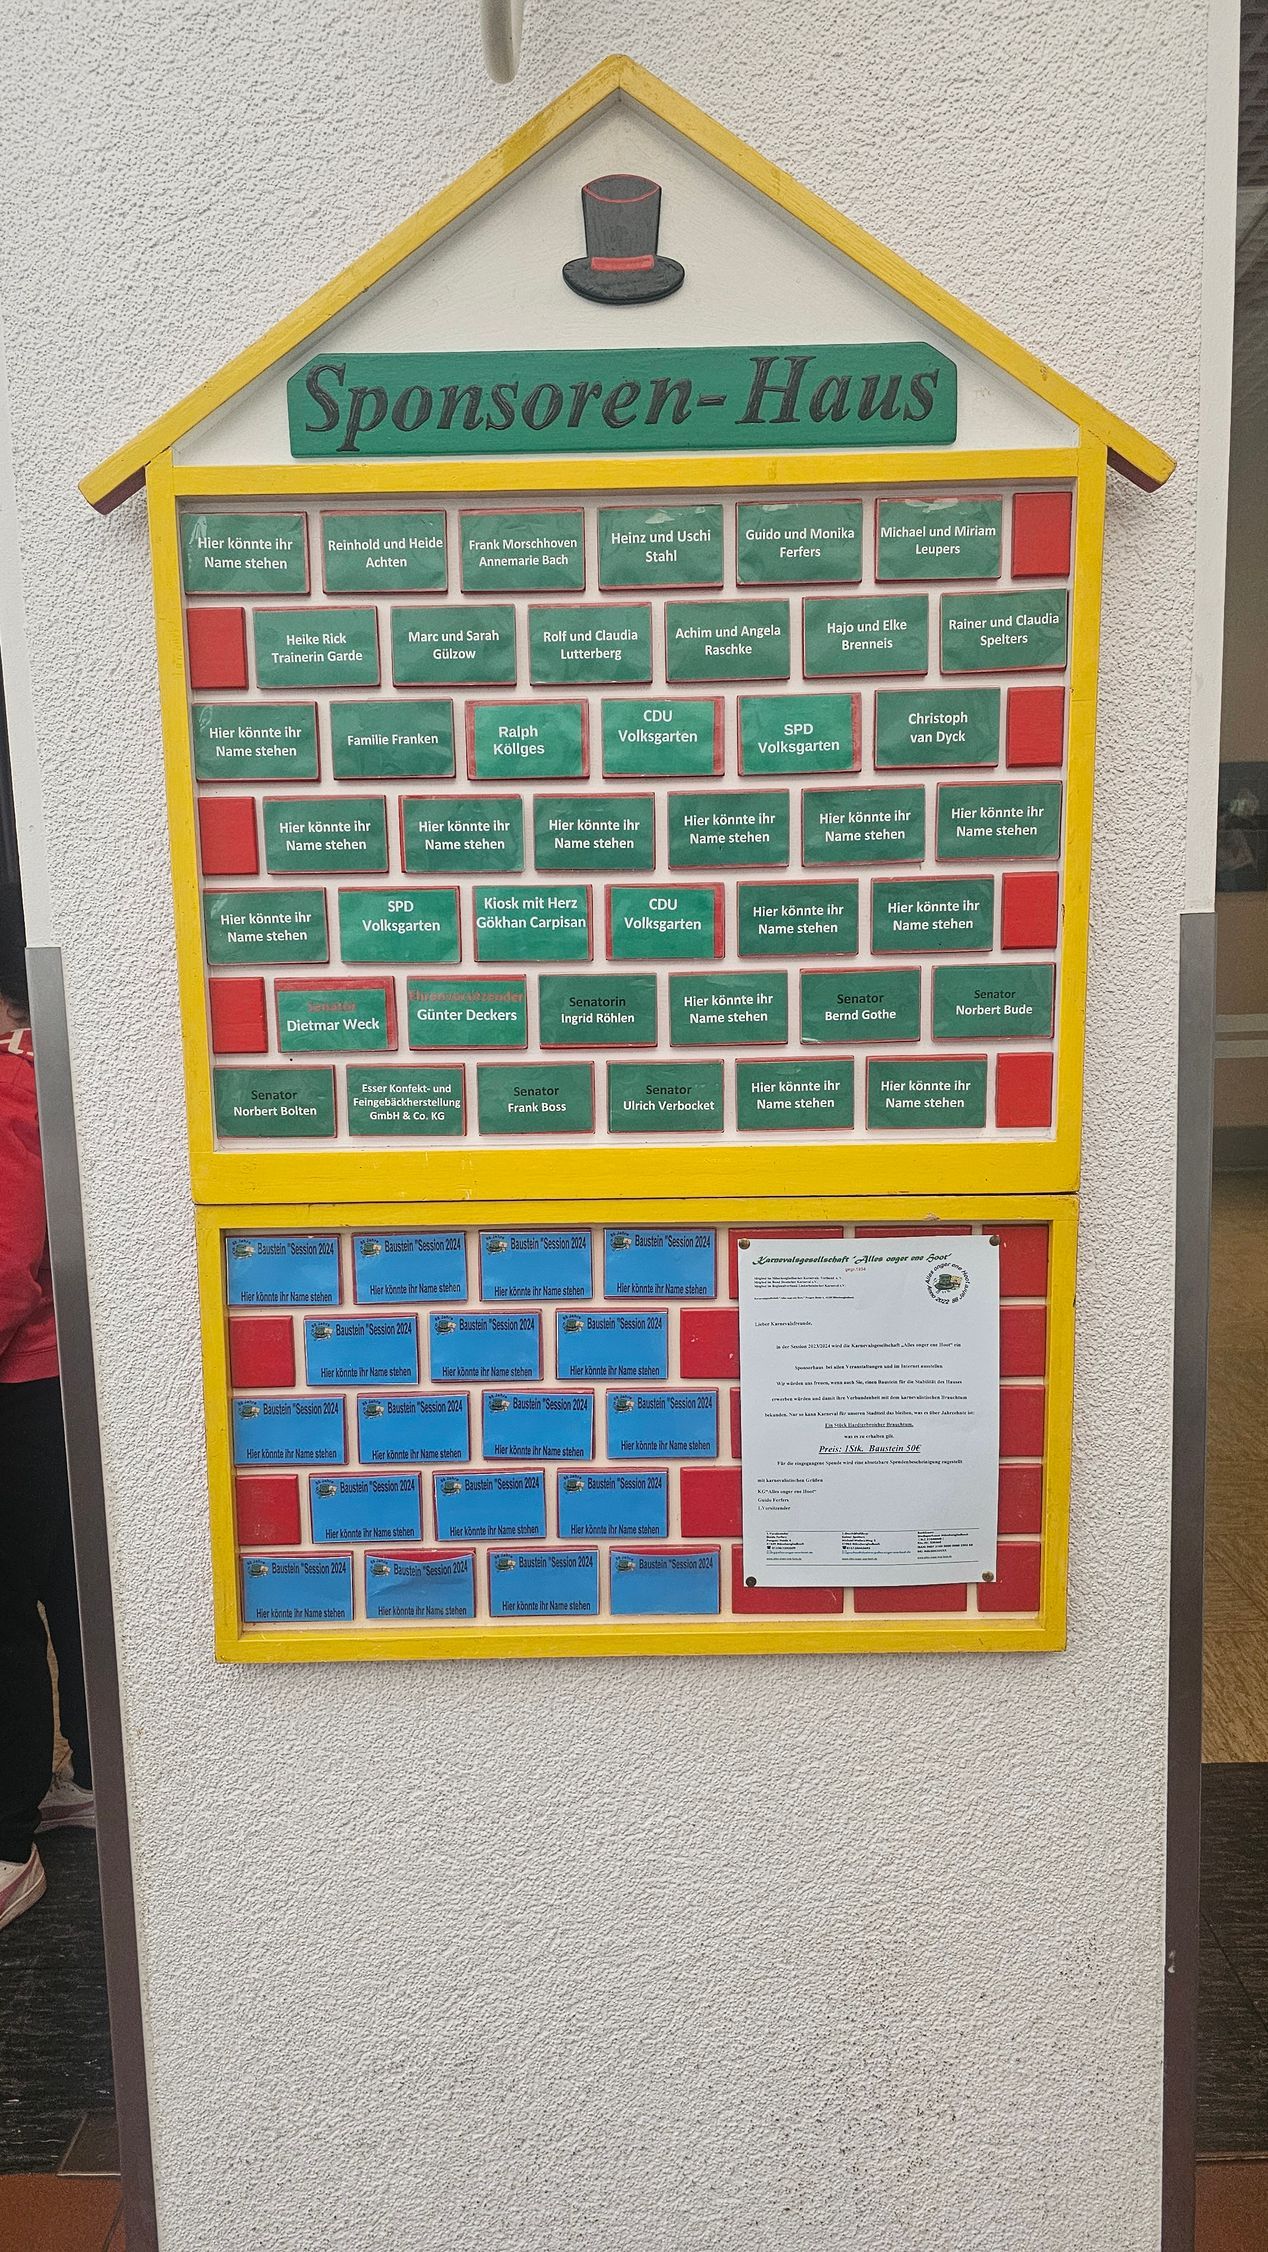 Sponsoren-Haus
Hier könnte ihr
Name stehen
Reinhold und Heide
Achten
Frank Morschhoven
Annemarie Bach
Heinz und Uschi
Stahl
Guido und Monika
Ferfers
Michael und Miriam
Leupers
Heike Rick
Trainerin Garde
Marc und Sarah
Gülzow
Rolf und Claudia
Lutterberg
Achim und Angela
Raschke
Hajo und Elke
Brenneis
Rainer und Claudia
Spelters
Hier könnte ihr
Name stehen
Familie Franken
Ralph
Köllges
CDU
Volksgarten
SPD
Volksgarten
Christoph
van Dyck
Hier könnte ihr
Name stehen
Hier könnte ihr
Name stehen
Hier könnte ihr
Name stehen
Hier könnte ihr
Name stehen
Hier könnte ihr
Name stehen
Hier könnte ihr
Name stehen
Hier könnte ihr
Name stehen
SPD
Volksgarten
Kiosk mit Herz
Gökhan Carpisan
CDU
Volksgarten
Hier könnte ihr
Name stehen
Hier könnte ihr
Name stehen
Senator
Dietmar Weck
Ehrenvorsitzender
Günter Deckers
Senatorin
Ingrid Röhlen
Hier könnte ihr
Name stehen
Senator
Bernd Gothe
Senator
Norbert Bude
Senator
Norbert Bolten
Esser Konfekt- und
Feingebäckherstellung
GmbH & Co. KG
Senator
Frank Boss
Senator
Ulrich Verbocket
Hier könnte ihr
Name stehen
Hier könnte ihr
Name stehen
Baustein "Session 2024
Hier könnte ihr Name stehen
Baustein "Session 2024
Hier könnte ihr Name stehen
Baustein "Session 2024
Hier könnte ihr Name stehen
Baustein "Session 2024
Hier könnte ihr Name stehen
Baustein "Session 2024
Hier könnte ihr Name stehen
Baustein "Session 2024
Hier könnte ihr Name stehen
Baustein "Session 2024
Hier könnte ihr Name stehen
Baustein "Session 2024
Hier könnte ihr Name stehen
Baustein "Session 2024
Hier könnte ihr Name stehen
Baustein "Session 2024
Hier könnte ihr Name stehen
Baustein "Session 2024
Hier könnte ihr Name stehen
Baustein "Session 2024
Hier könnte ihr Name stehen
Baustein "Session 2024
Hier könnte ihr Name stehen
Baustein "Session 2024
Hier könnte ihr Name stehen
Baustein "Session 2024
Hier könnte ihr Name stehen
Baustein "Session 2024
Hier könnte ihr Name stehen
Baustein "Session 2024
Hier könnte ihr Name stehen
Baustein "Session 2024
Hier könnte ihr Name stehen
Karnevalsgesellschaft "Alles onger ene Hoot"
Lieber Karnevalsfreunde,
in der Session 2023/2024 wird die Karnevalsgesellschaft „Alles onger ene Hoot" ein
Sponsorhaus bei allen Veranstaltungen und im Internet ausstellen.
Wir würden uns freuen, wenn auch Sie, einen Baustein für die Stabilität des Hauses
erwerben würden und damit ihre Verbundenheit mit dem karnevalistischen Brauchtum
bekunden. Nur so kann Karneval für unseren Stadtteil das bleiben, was es über Jahrzehnte ist:
Ein Stück Hardterbroicher Brauchtum.
was es zu erhalten gilt.
Preis: 1Stk. Baustein 50€
Für die eingegangene Spende wird eine absetzbare Spendenbescheinigung zugestellt
mit karnevalistischen Grüßen
KG"Alles onger ene Hoot"
Guido Ferfers
1.Vorsitzender